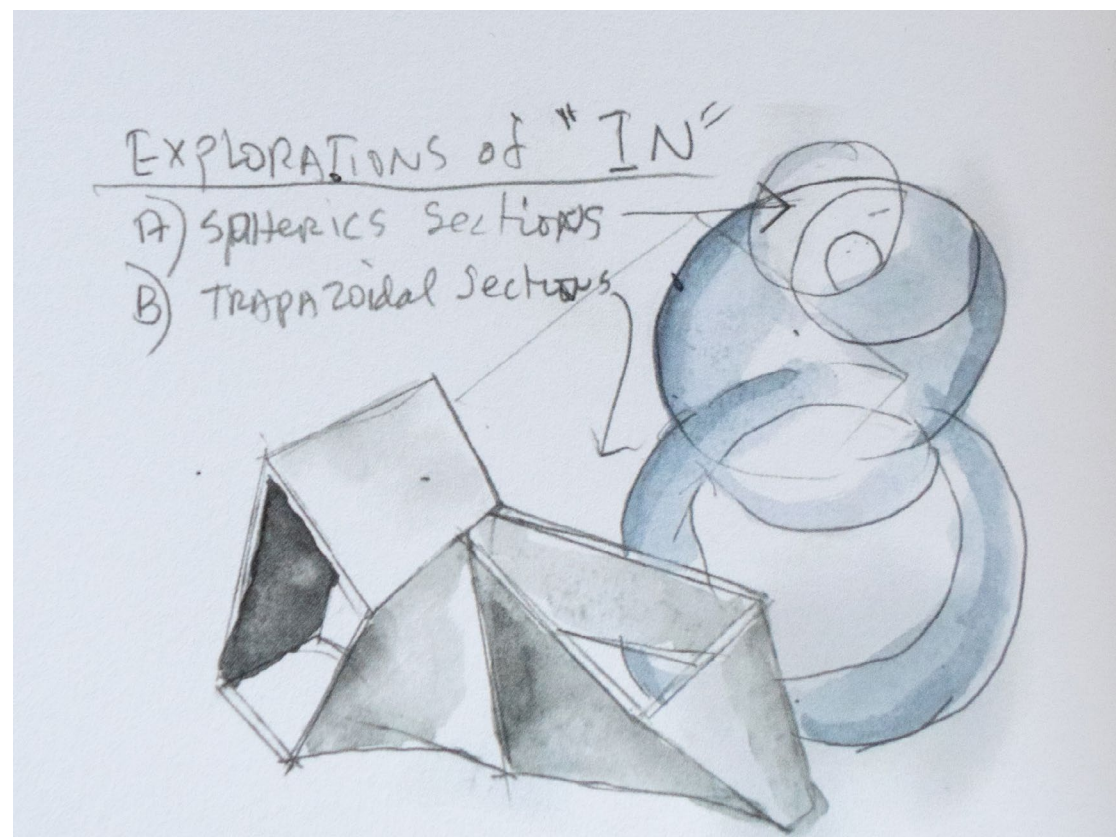 EXPLORATIONS of "IN"
A) SPHERICS Sections
B) TRAPAZOidal Sections